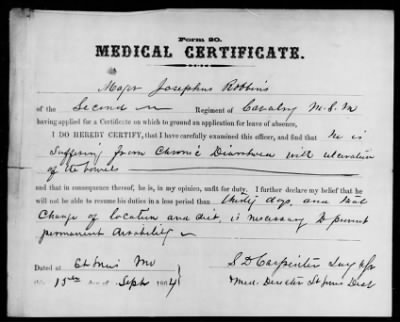 Form 20.
MEDICAL CERTIFICATE.
Major Josephus Robbins
of the Second Regiment of Cavalry M.S.M
having applied for a Certificate on which to ground an application for leave of absence,
I DO HEREBY CERTIFY, that I have carefully examined this officer, and find that he is
suffering from Chronic Diarrhoea with ulceration
of the bowels
and that in consequence thereof, he is, in my opinion, unfit for duty. I further declare my belief that he
will not be able to resume his duties in a less period than thirty days, and that
Change of location and diet, is necessary to prevent
permanent disability
Dated at St Louis Mo
15th day of Sept 1864
S D Carpenter Surg
Med. Director St Louis Dist